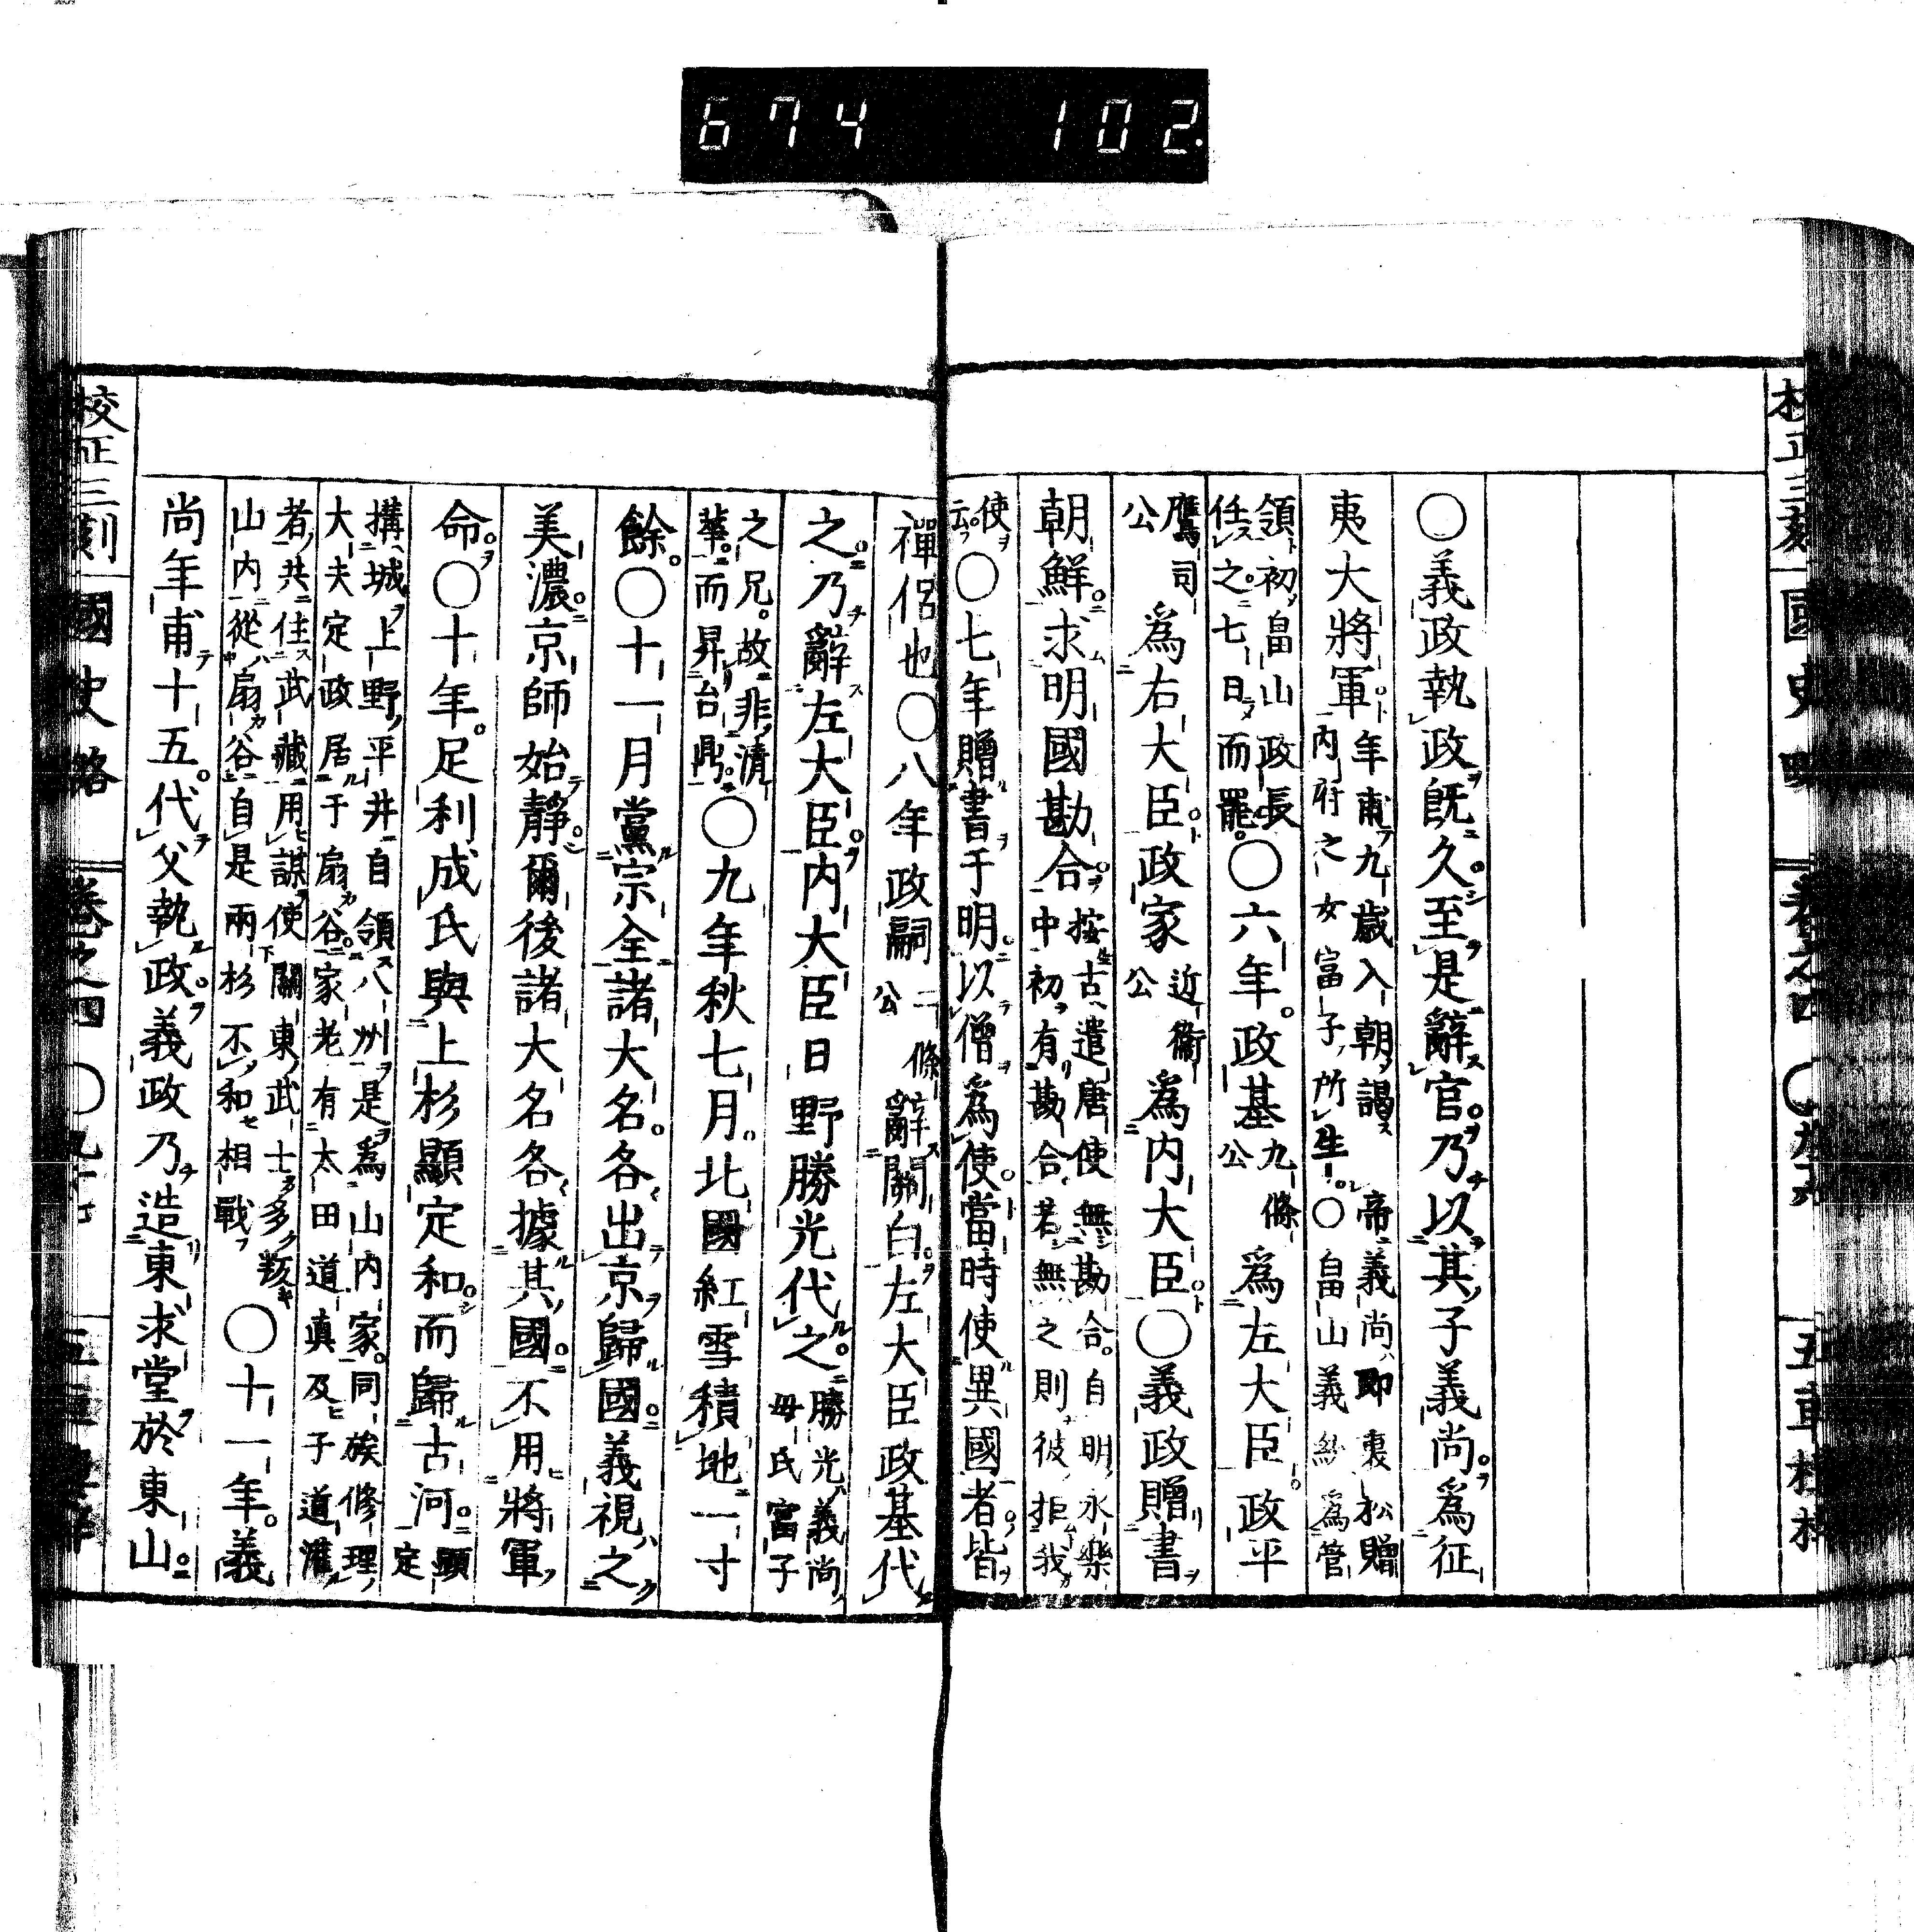 674 102.
國史
○義政執政既久至是辭官乃以其子義尚爲征
夷大將軍年甫九歲入朝謁帝義尚即裏松贈
內府之女富子所生○畠山義就爲管
領初畠山政長
任之七日而罷○六年政基九條公爲左大臣政平
鷹司公爲右大臣政家近衞公爲內大臣○義政贈書
朝鮮求明國勘合按古遣唐使無勘合自明永樂
中初有勘合若無之則彼拒我
使云○七年贈書于明以僧爲使當時使異國者皆
禪侶也○八年政嗣二條公辭關白左大臣政基代
之乃辭左大臣內大臣日野勝光代之勝光義尚
母氏富子
之兄故非清
華而昇台鼎○九年秋七月北國紅雪積地一寸
餘○十一月黨宗全諸大名各出京歸國義視之
美濃京師始靜爾後諸大名各據其國不用將軍
命○十年足利成氏與上杉顯定和而歸古河顯
定
搆城上野平井自領八州是爲山內家同族修理
大夫定政居于扇谷家老有太田道真及子道灌
者共住武藏用謀使關東武士多叛
山內從扇谷自是兩杉不和相戰○十一年義
尚年甫十五代父執政義政乃造東求堂於東山
校正三刻 國史略